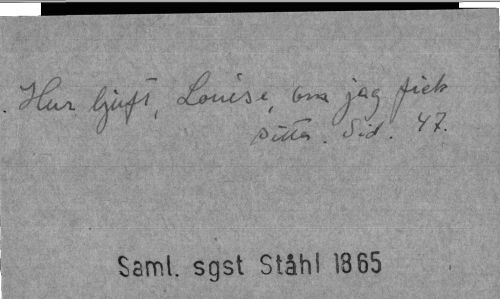 Hur ljuft, Louise, om jag fick
sitta. Sid. 47.
Saml. sgst Ståhl 1865